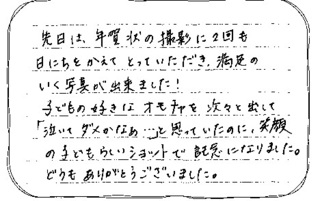 先日は、年賀状の撮影に2回も
日にちをかえてとっていただき、満足の
いく写真が出来ました！
子どもの好きなオモチャを次々と出して
「泣いてダメかなぁ…」と思っていたのに、笑顔
の子どもらしいショットで記念になりました。
どうもありがとうございました。